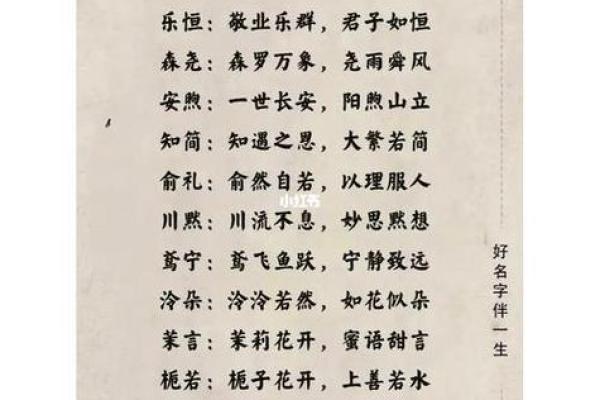 乐恒：敬业乐群，君子如恒
森尧：森罗万象，尧雨舜风
安煦：一世长安，阳煦山立
知简：知遇之恩，大繁若简
俞礼：俞然自若，以理服人
川默：川流不息，妙思默想
鸢宁：鸢飞鱼跃，宁静致远
泠朵：泠泠若然，如花似朵
茉言：茉莉花开，蜜语甜言
栀若：栀子花开，上善若水
小红书
好名字伴一生